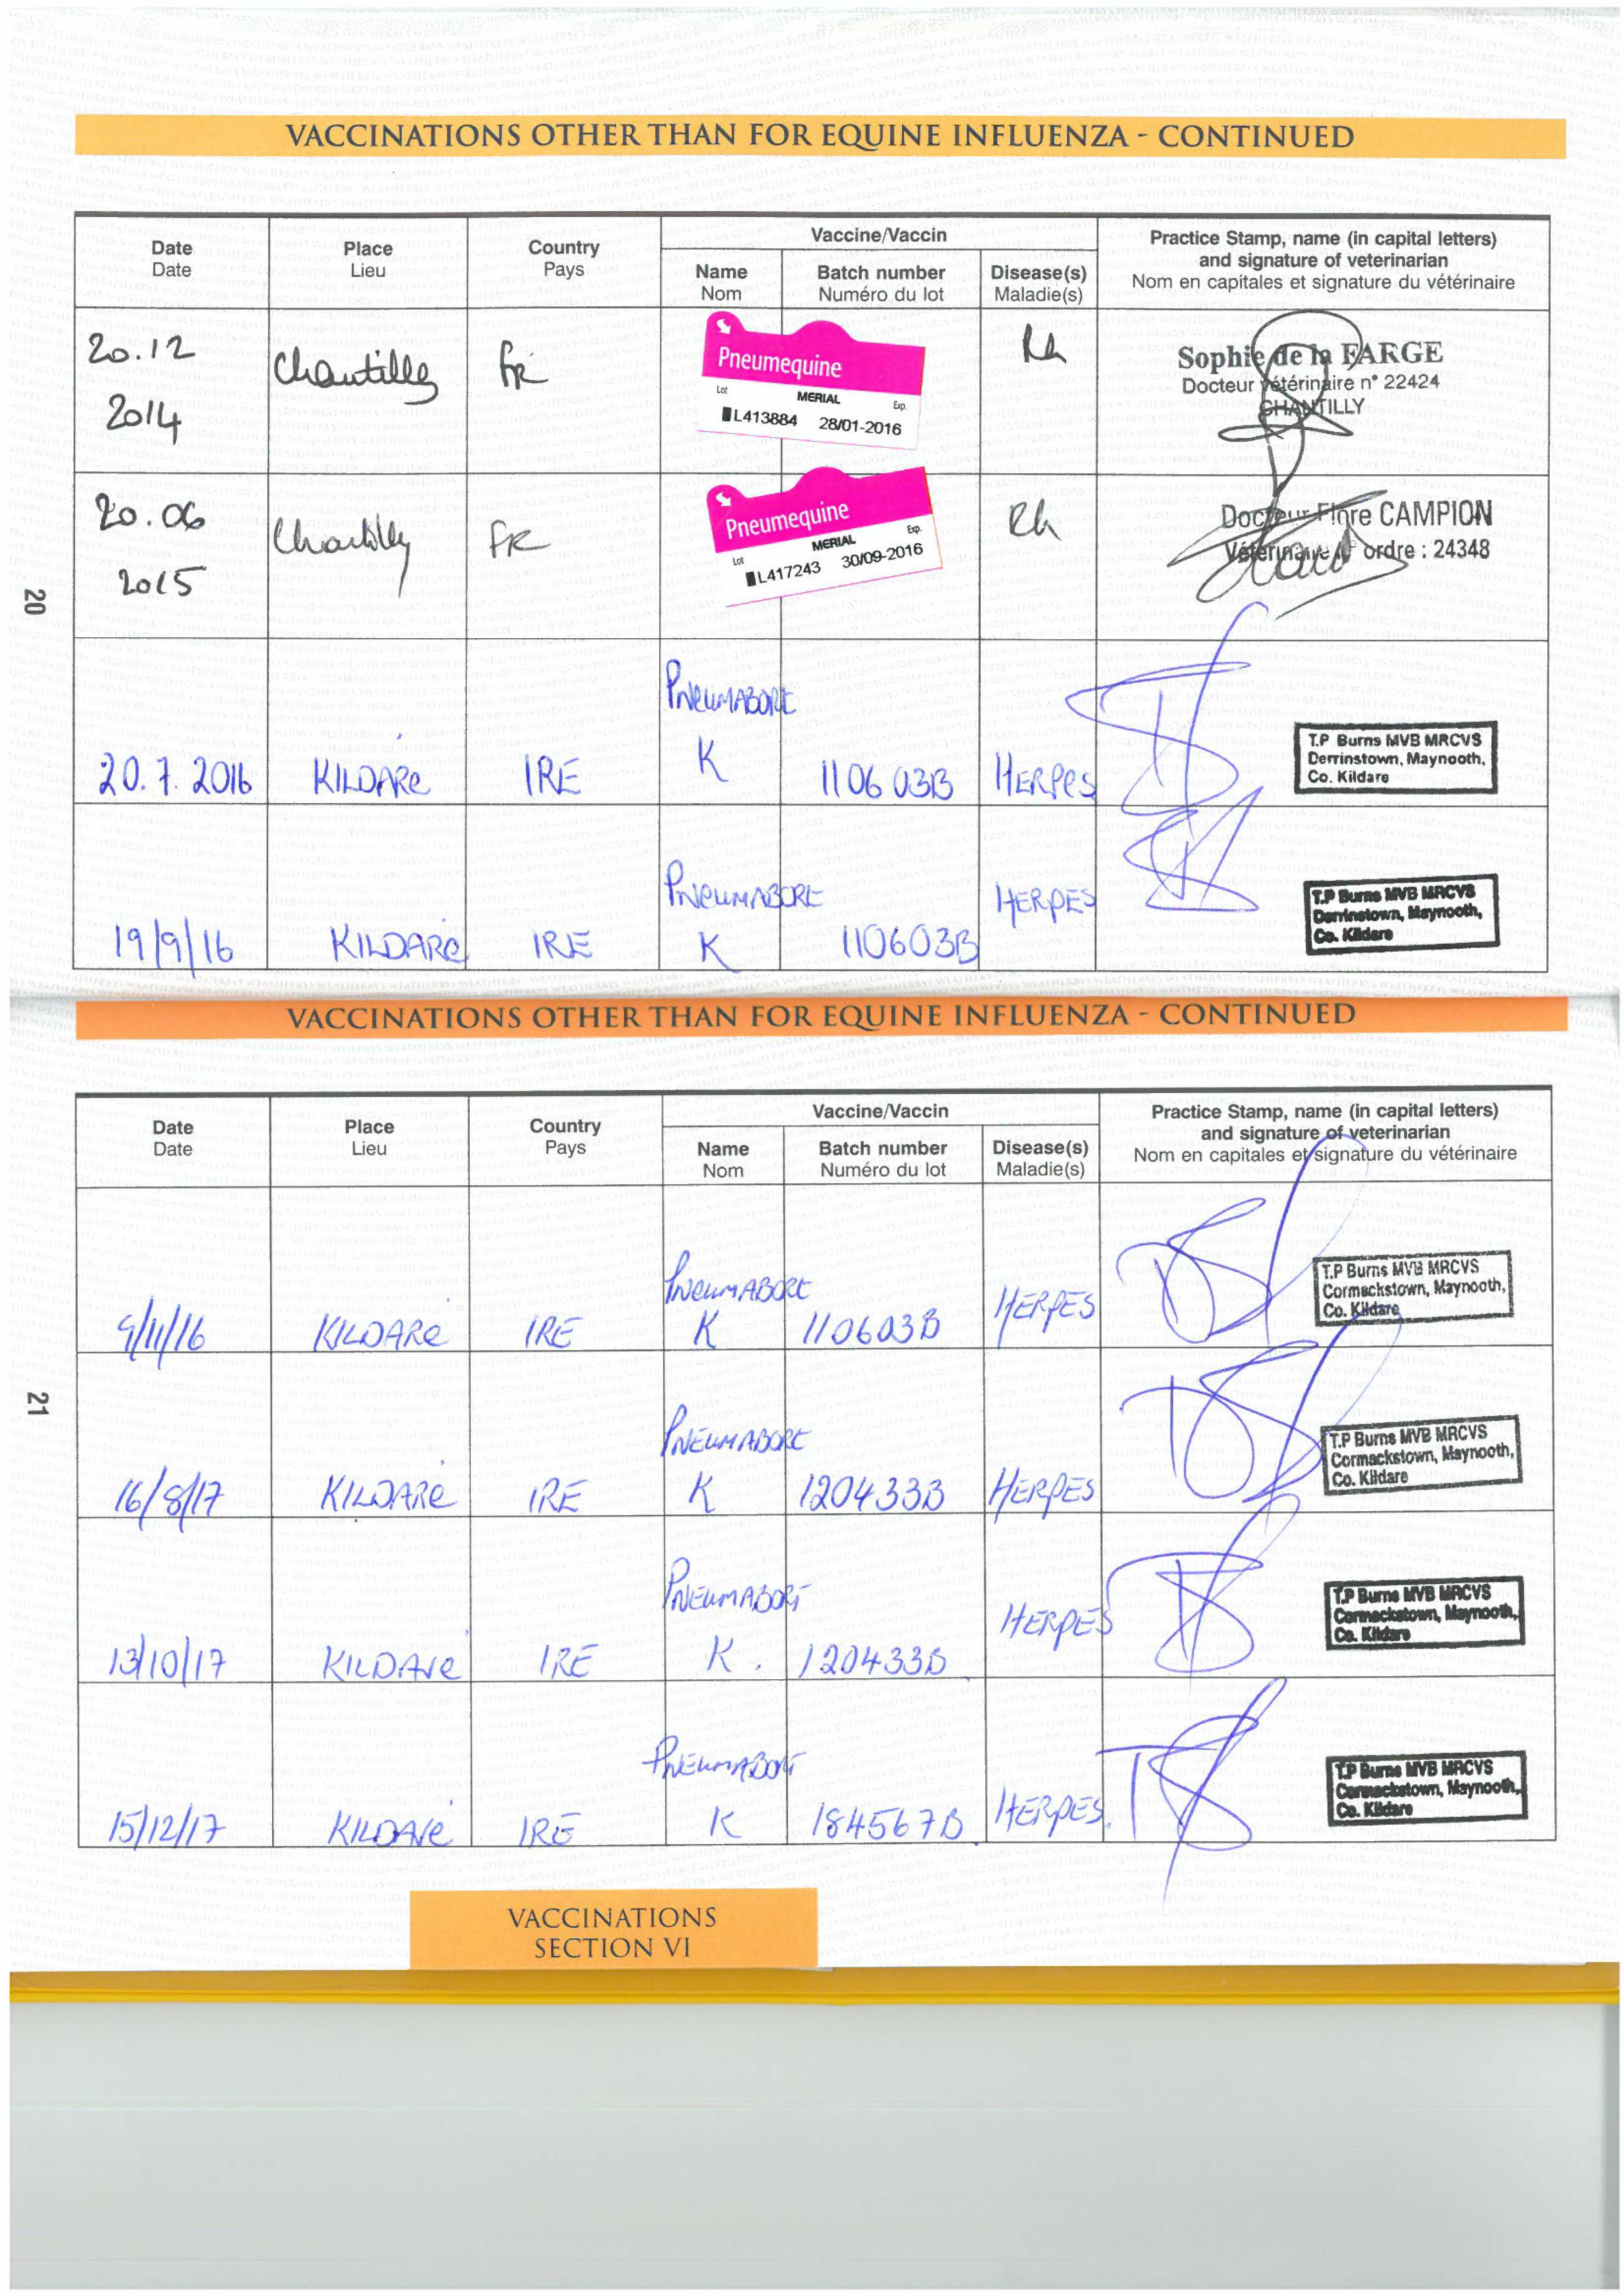 VACCINATIONS OTHER THAN FOR EQUINE INFLUENZA - CONTINUED
Date
Date
Place
Lieu
Country
Pays
Vaccine/Vaccin
Name
Nom
Batch number
Numéro du lot
Disease(s)
Maladie(s)
Practice Stamp, name (in capital letters)
and signature of veterinarian
Nom en capitales et signature du vétérinaire
20.12
2014
Chantilly
FR
Pneumequine
Lot
MERIAL
Exp.
L413884 28/01-2016
Rh
Sophie de la FARGE
Docteur vétérinaire n° 22424
CHANTILLY
20.06
2015
Chantilly
FR
Pneumequine
Lot
MERIAL
Exp.
L417243 30/09-2016
Rh
Docteur Flore CAMPION
Vétérinaire N° ordre : 24348
20
20.7.2016
KILDARE
IRE
PNEUMABORT
K
110603B
HERPES
T.P Burns MVB MRCVS
Derrinstown, Maynooth,
Co. Kildare
19/9/16
KILDARE
IRE
PNEUMABORT
K
110603B
HERPES
T.P Burns MVB MRCVS
Derrinstown, Maynooth,
Co. Kildare
VACCINATIONS OTHER THAN FOR EQUINE INFLUENZA - CONTINUED
Date
Date
Place
Lieu
Country
Pays
Vaccine/Vaccin
Name
Nom
Batch number
Numéro du lot
Disease(s)
Maladie(s)
Practice Stamp, name (in capital letters)
and signature of veterinarian
Nom en capitales et signature du vétérinaire
9/11/16
KILDARE
IRE
PNEUMABORT
K
110603B
HERPES
T.P Burns MVB MRCVS
Cormackstown, Maynooth,
Co. Kildare
21
16/8/17
KILDARE
IRE
PNEUMABORT
K
120433B
HERPES
T.P Burns MVB MRCVS
Cormackstown, Maynooth,
Co. Kildare
13/10/17
KILDARE
IRE
PNEUMABORT
K.
120433B
HERPES
T.P Burns MVB MRCVS
Cormackstown, Maynooth,
Co. Kildare
15/12/17
KILDARE
IRE
PNEUMABORT
K
184567B
HERPES.
T.P Burns MVB MRCVS
Cormackstown, Maynooth,
Co. Kildare
VACCINATIONS
SECTION VI